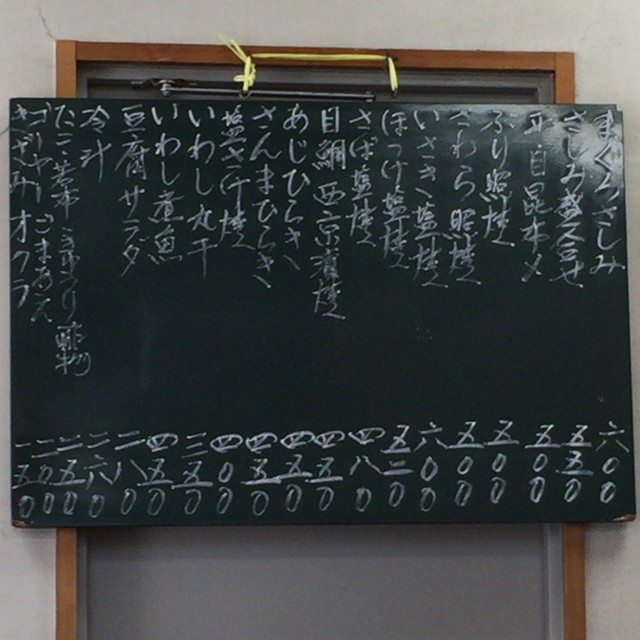 まぐろさしみ 六〇〇
さしみ盛合せ 五五〇
平目昆布〆 五〇〇
ぶり照焼 五〇〇
さわら照焼 五〇〇
いさき塩焼 六〇〇
ほっけ塩焼 五二〇
さば塩焼 四八〇
目鯛西京漬焼 四五〇
あじひらき 四五〇
さんまひらき 四五〇
塩さけ焼 四〇〇
いわし丸干 三五〇
いわし煮魚 四五〇
豆腐サラダ 二八〇
冷汁 二六〇
たこ若布きゅうり酢物 二五〇
ごまあえ 二五〇
きざみオクラ 一五〇